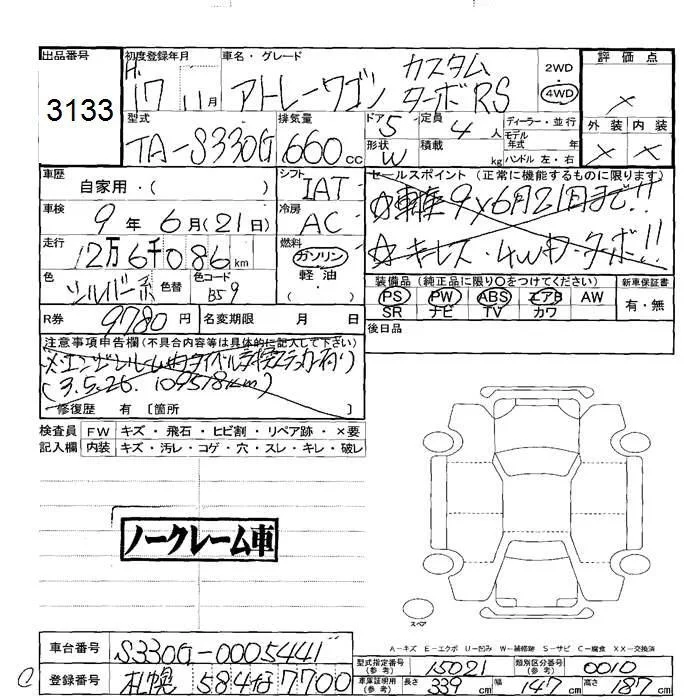 出品番号
3133
初度登録年月
H 17 11月
車名・グレード
アトレーワゴン カスタム ターボRS
2WD
4WD
評価点
×
外装 内装
× ×
型式
TA-S330G
排気量
660 cc
ドア 5
形状 W
定員 4 人
積載 kg
ディーラー・並行
モデル年式 年
ハンドル 左・右
車歴
自家用・( )
シフト
IAT
セールスポイント (正常に機能するものに限ります)
☆車検9年6月21日まで!!
☆キーレス・4WD・ターボ!!
車検
9年 6月(21日)
冷房
AC
走行
12万6千086 km
燃料
ガソリン
軽油
・( )
色
シルバー系
色替
色コード
B59
装備品 (純正品に限り○をつけてください)
PS PW ABS エアB AW
SR ナビ TV カワ
新車保証書
有・無
R券
9780円
名変期限 月 日
後日品
注意事項申告欄(不具合内容等は具体的に記入して下さい)
(3.5.26. 109578km)
修復歴 有 [箇所 ]
検査員記入欄
FW キズ・飛石・ヒビ割・リペア跡・×要
内装 キズ・汚レ・コゲ・穴・スレ・キレ・破レ
ノークレーム車
スペア
A-キズ E-エクボ U-凹み W-補修跡 S-サビ C-腐食 XX-交換済
車台番号
S330G-0005441
登録番号
札幌 584 7700
型式指定番号(参考) 15021
類別区分番号(参考) 0010
車庫証明用(参考) 長さ 339 cm 幅 147 cm 高さ 187 cm